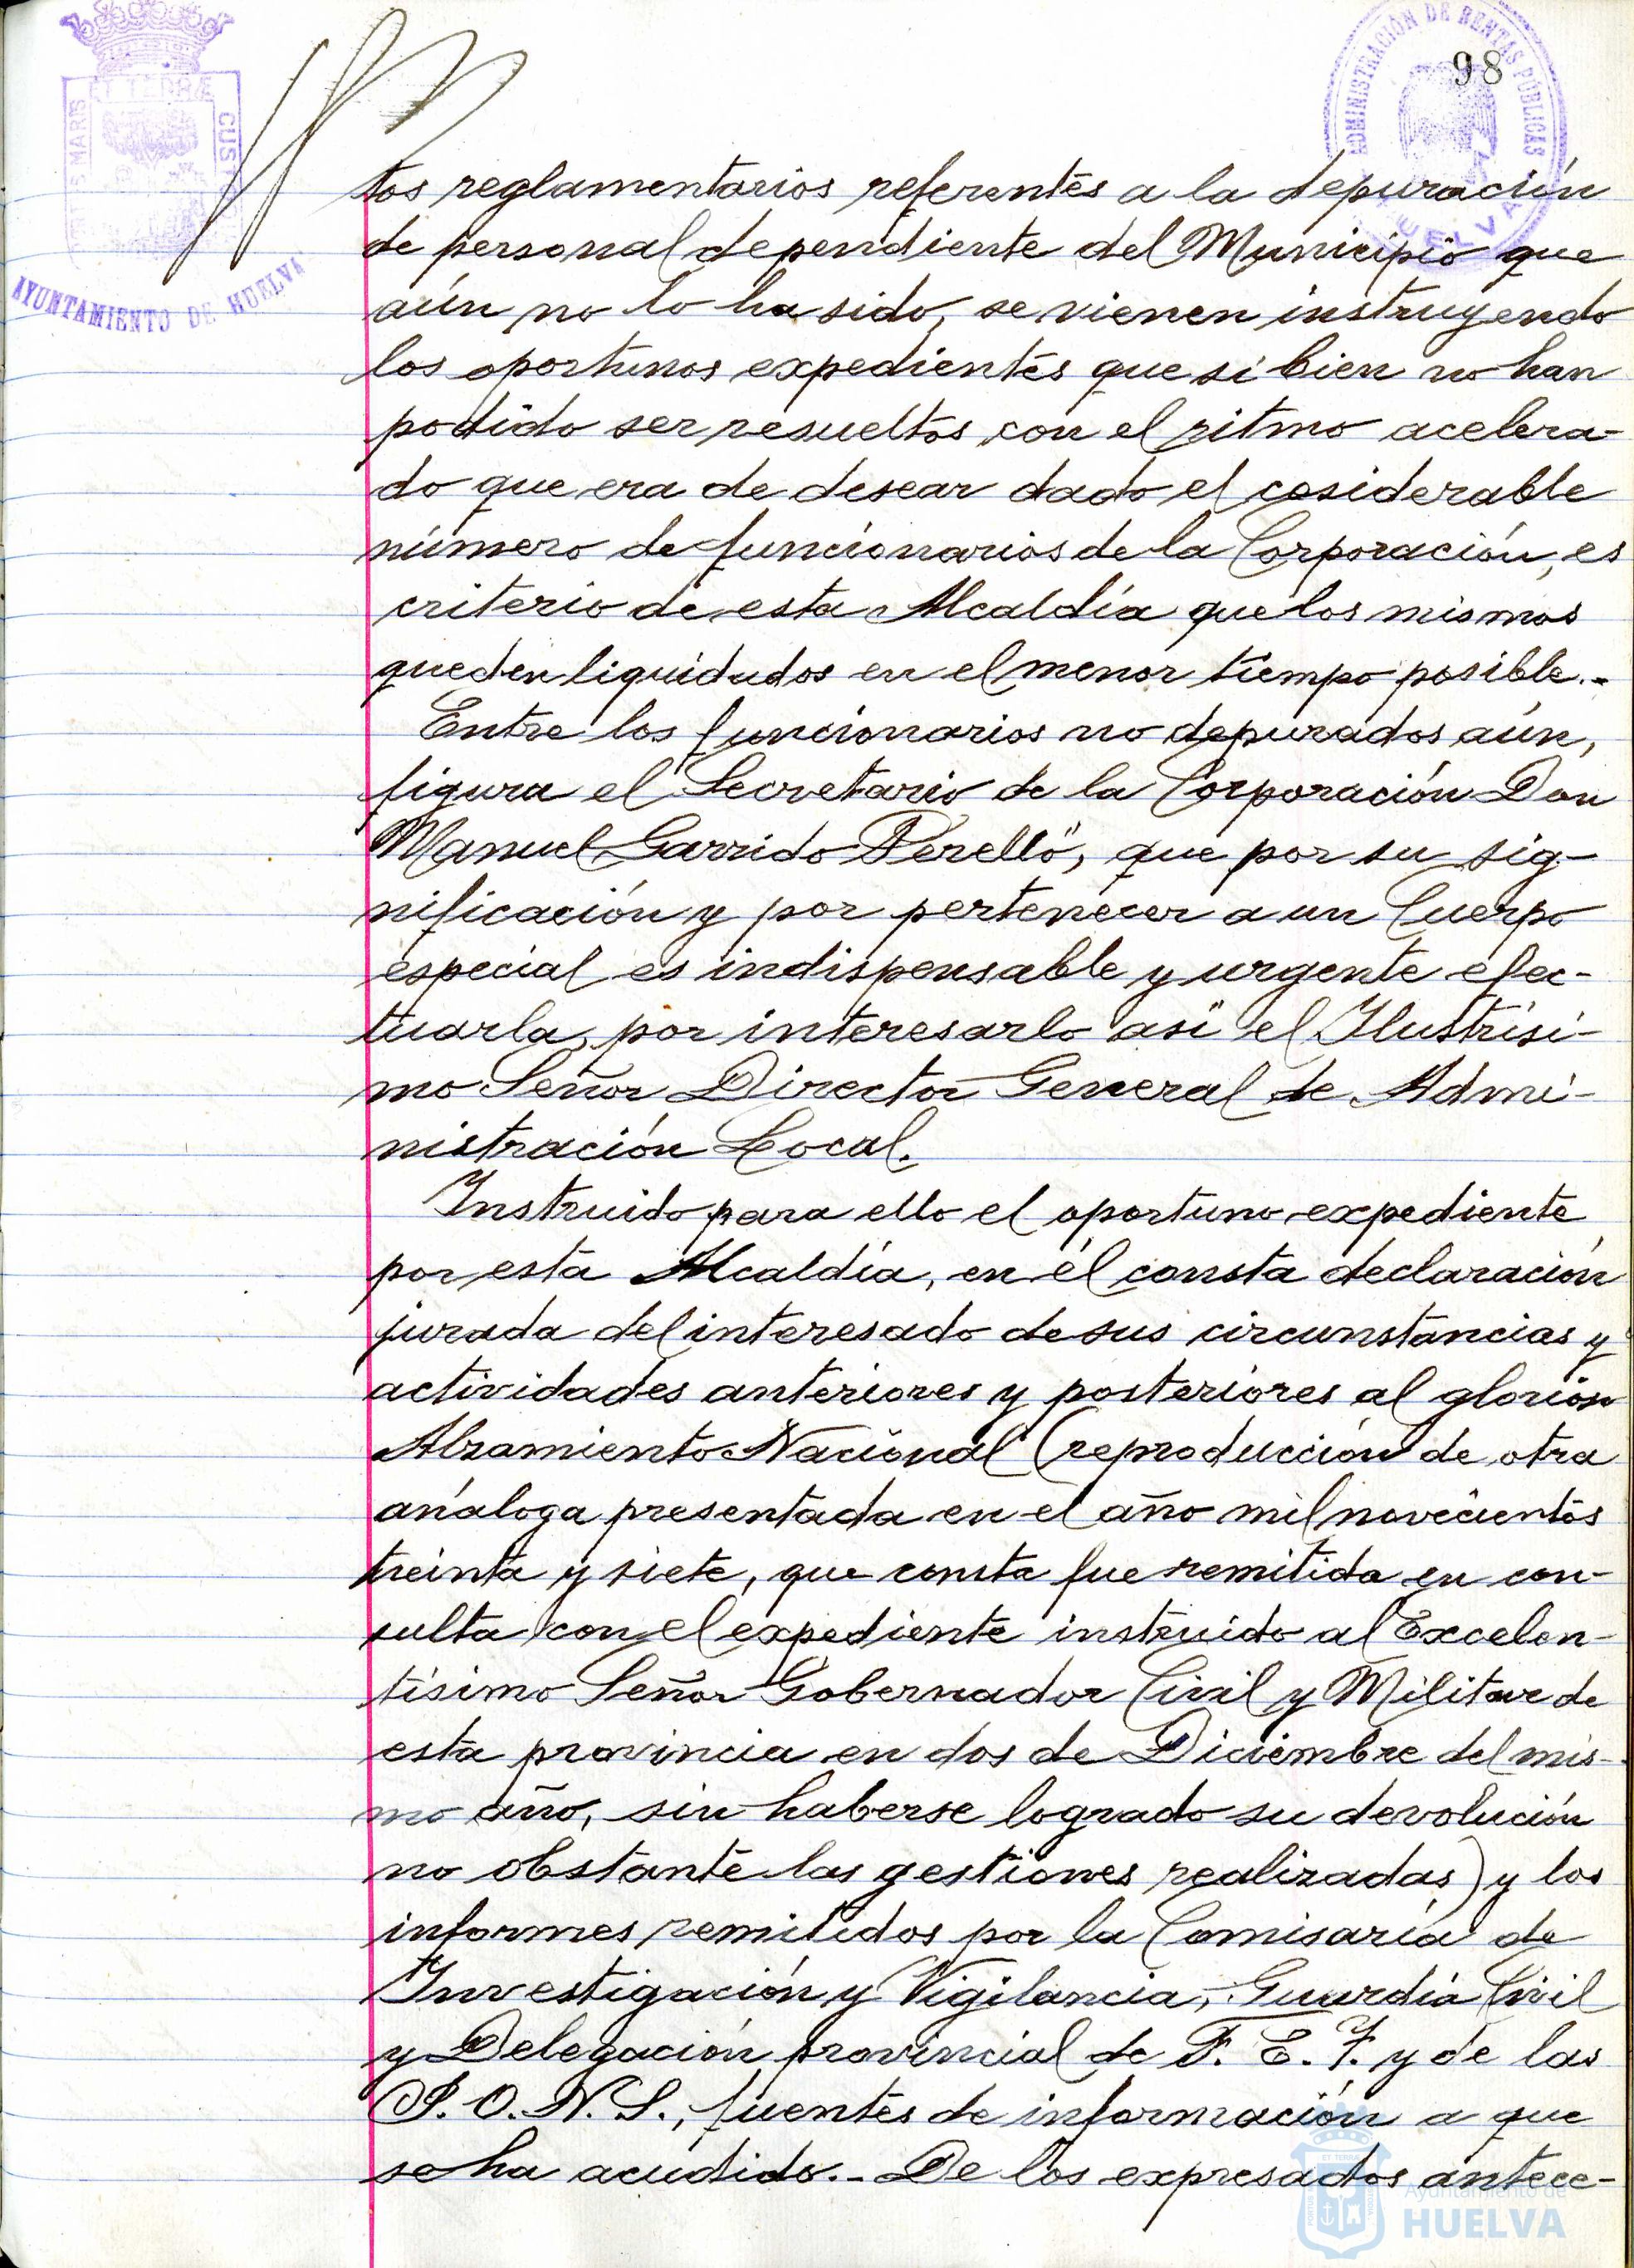 98
ADMINISTRACIÓN DE RENTAS PÚBLICAS
HUELVA
MARIS
ET TERRAE
CUS
AYUNTAMIENTO DE HUELVA
tos reglamentarios referentes a la depuración
de personal dependiente del Municipio que
aún no lo ha sido, se vienen instruyendo
los oportunos expedientes que si bien no han
podido ser resueltos con el ritmo acelera-
do que era de desear dado el cosiderable
número de funcionarios de la Corporación, es
criterio de esta Alcaldía que los mismos
queden liquidados en el menor tiempo posible.-
Entre los funcionarios no depurados aún,
figura el Secretario de la Corporación Don
Manuel Garrido Perelló, que por su sig-
nificación y por pertenecer a un Cuerpo
especial es indispensable y urgente efec-
tuarla, por interesarlo así el Ilustrísi-
mo Señor Director General de Admi-
nistración Local.
Instruido para ello el oportuno expediente
por esta Alcaldía, en él consta declaración
jurada del interesado de sus circunstancias y
actividades anteriores y posteriores al glorioso
Alzamiento Nacional (reproducción de otra
análoga presentada en el año mil novecientos
treinta y siete, que consta fue remitida en con-
sulta con el expediente instruido al Excelen-
tísimo Señor Gobernador Civil y Militar de
esta provincia en dos de Diciembre del mis-
mo año, sin haberse logrado su devolución
no obstante las gestiones realizadas) y los
informes remitidos por la Comisaría de
Investigación y Vigilancia, Guardia Civil
y Delegación provincial de F. E. T. y de las
J. O. N. S., fuentes de información a que
se ha acudido.- De los expresados antece-
Ayuntamiento de
HUELVA